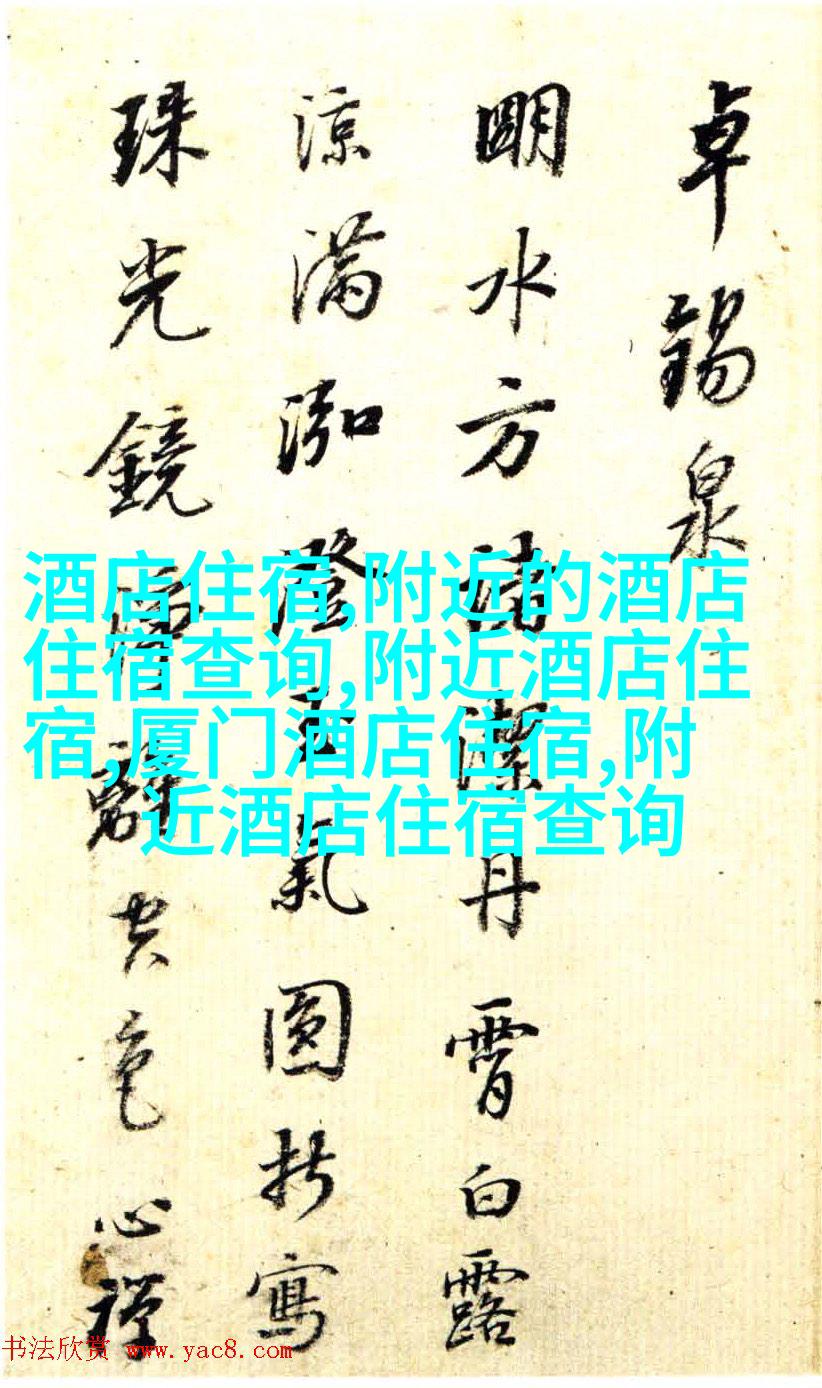 卓錫泉
朙水方諸潔丹霄白露
涼滿泓澄玉氣圓折寫
珠光鏡辭空色心禪
酒店住宿,附近的酒店
住宿查询,附近酒店住
宿,厦门酒店住宿,附
近酒店住宿查询
书法欣赏 www.yac8.com